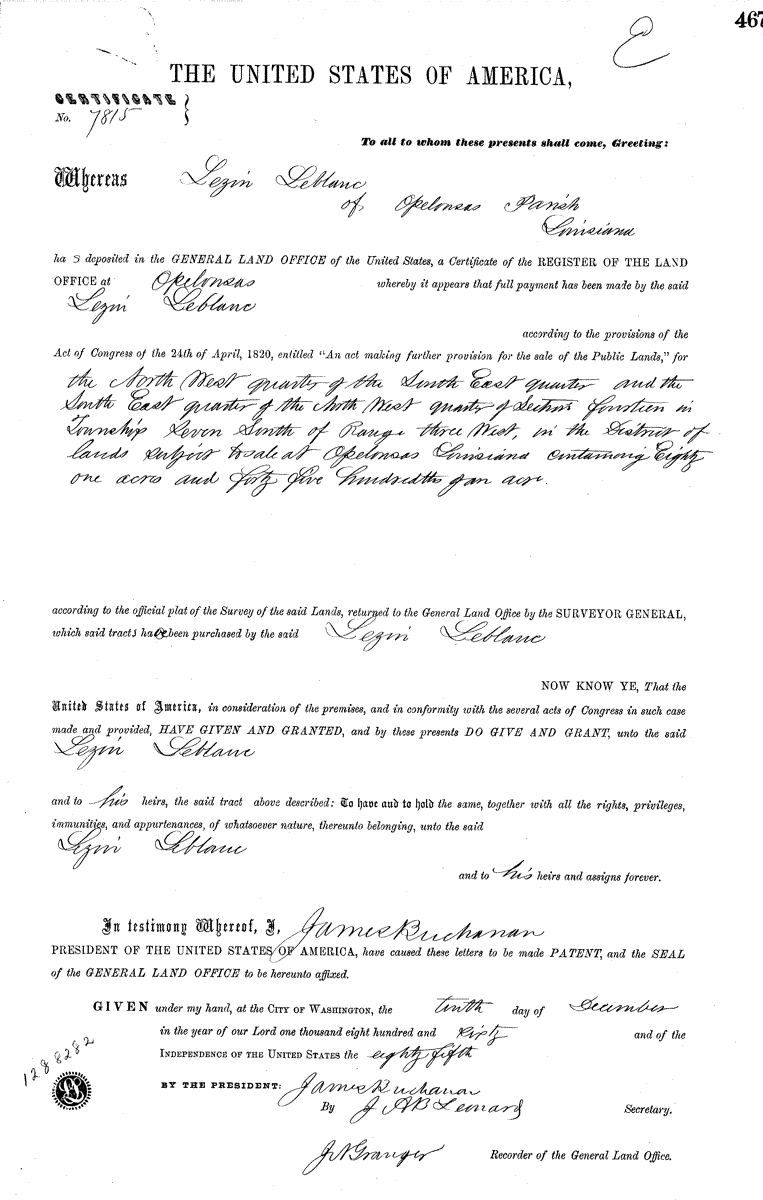 467
E
THE UNITED STATES OF AMERICA,
CERTIFICATE
No. 7815
To all to whom these presents shall come, Greeting:
Whereas Lezin Leblanc
of Opelousas Parish
Louisiana
ha s deposited in the GENERAL LAND OFFICE of the United States, a Certificate of the REGISTER OF THE LAND
OFFICE at Opelousas whereby it appears that full payment has been made by the said
Lezin Leblanc
according to the provisions of the
Act of Congress of the 24th of April, 1820, entitled "An act making further provision for the sale of the Public Lands," for
the North West quarter of the South East quarter and the
South East quarter of the North West quarter of Section fourteen in
Township Seven South of Range three West, in the District of
lands subject to sale at Opelousas Louisiana containing Eighty
one acres and forty five hundredths of an acre.
according to the official plat of the Survey of the said Lands, returned to the General Land Office by the SURVEYOR GENERAL,
which said tracts have been purchased by the said Lezin Leblanc
NOW KNOW YE, That the
United States of America, in consideration of the premises, and in conformity with the several acts of Congress in such case
made and provided, HAVE GIVEN AND GRANTED, and by these presents DO GIVE AND GRANT, unto the said
Lezin Leblanc
and to his heirs, the said tract above described: To have and to hold the same, together with all the rights, privileges,
immunities, and appurtenances, of whatsoever nature, thereunto belonging, unto the said
Lezin Leblanc
and to his heirs and assigns forever.
In testimony Whereof, I, James Buchanan
PRESIDENT OF THE UNITED STATES OF AMERICA, have caused these letters to be made PATENT, and the SEAL
of the GENERAL LAND OFFICE to be hereunto affixed.
GIVEN under my hand, at the CITY OF WASHINGTON, the tenth day of December
in the year of our Lord one thousand eight hundred and sixty and of the
INDEPENDENCE OF THE UNITED STATES the eighty fifth
1288282
BY THE PRESIDENT: James Buchanan
By J A B Leonard Secretary.
J N Granger Recorder of the General Land Office.